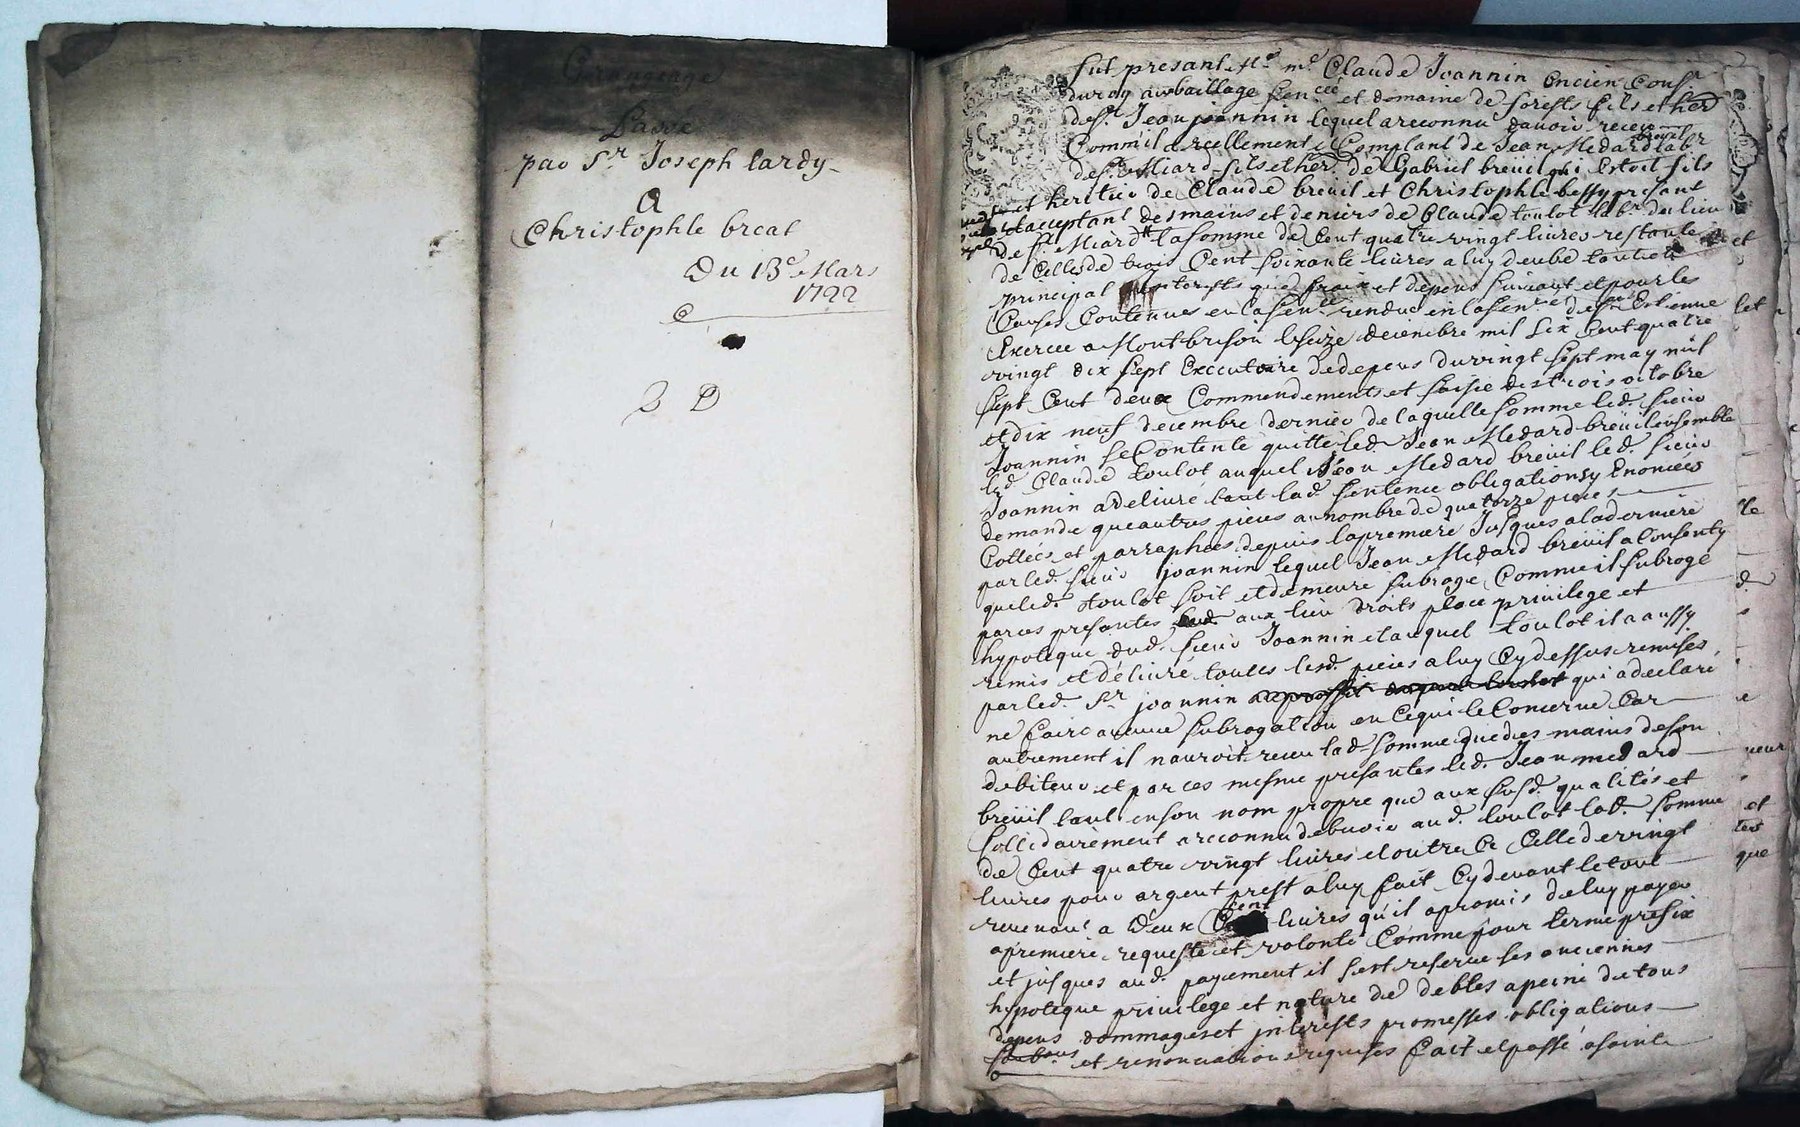 Grangeage
Passé
par Sr Joseph lardy
A
Christophle breat
Du 13e Mars
1722
2 D
fut presant Me Claude Joannin encien Consr
du roy au baillage sencee et domaine de forests fils et her
def.t Jean joannin lequel a reconnu davoir receu
Comm'il a reellement Comptant de Jean Medard breuil labr
de Miard fils et her de Gabriel breüil qui Estoit fils
et heritier de Claude breuil et Christophle bessy presant
et acceptant des mains et deniers de Claude toulot labr du lieu
de Miard la somme de Cent quatre vingt livres restante
de Celles de trois Cent soixante livres a luy deube tant en
principal interests que fraix et depens suivant et pour les
Causes Contenues en la senee rendue en la senee de forests
Exercee a Montbrison le seize decembre mil six Cent quatre
vingt dix sept Executoire de depens du vingt sept may mil
sept Cent deux Commendements et saisie des trois octobre
et dix neuf decembre dernier de laquelle somme led. sieur
Joannin se Contente quitte led. Jean Medard breüil ensemble
led. Claude toulot auquel Jean Medard breuil led. sieur
Joannin a delivré tant lad. sentence obligations y Enoncées
demande que autres pieces au nombre de quatorze pieces
Cottées et parraphées depuis la premiere Jusques a la derniere
par led. sieur joannin lequel Jean Medard breüil a Consenty
que led. toulot soit et demeure subrogé Comme il subroge
par ces presantes aux lieu droits place privilege et
hypoteque dud. sieur Joannin et auquel toulot il a aussy
remis et délivré touttes lesd. pieces a luy Cy dessus remises
par led. Sr joannin qui a declaré
ne faire aucune subrogation en Ce qui le Concerne Car
autrement il n'auroit receu lad. somme que des mains de son
debiteur et par ces mesme presantes led. Jean medard
breüil tant en son nom propre que aux susd. qualités et
sollidairement a reconnu debvoir aud. toulot lad. somme
de Cent quatre vingt livres et outre Ce Celle de vingt
livres pour argent prest a luy fait Cy devant le tout
revenant a deux Cent livres qu'il a promis de luy payer
a premiere requeste et volonté Comme pour terme prefix
et jusques aud. payement il s'est reservé ses anciennes
hypoteque privilege et nature de debtes a peine de tous
depens dommages et interests promesses obligations
et renonciations requises fait et passé a saint